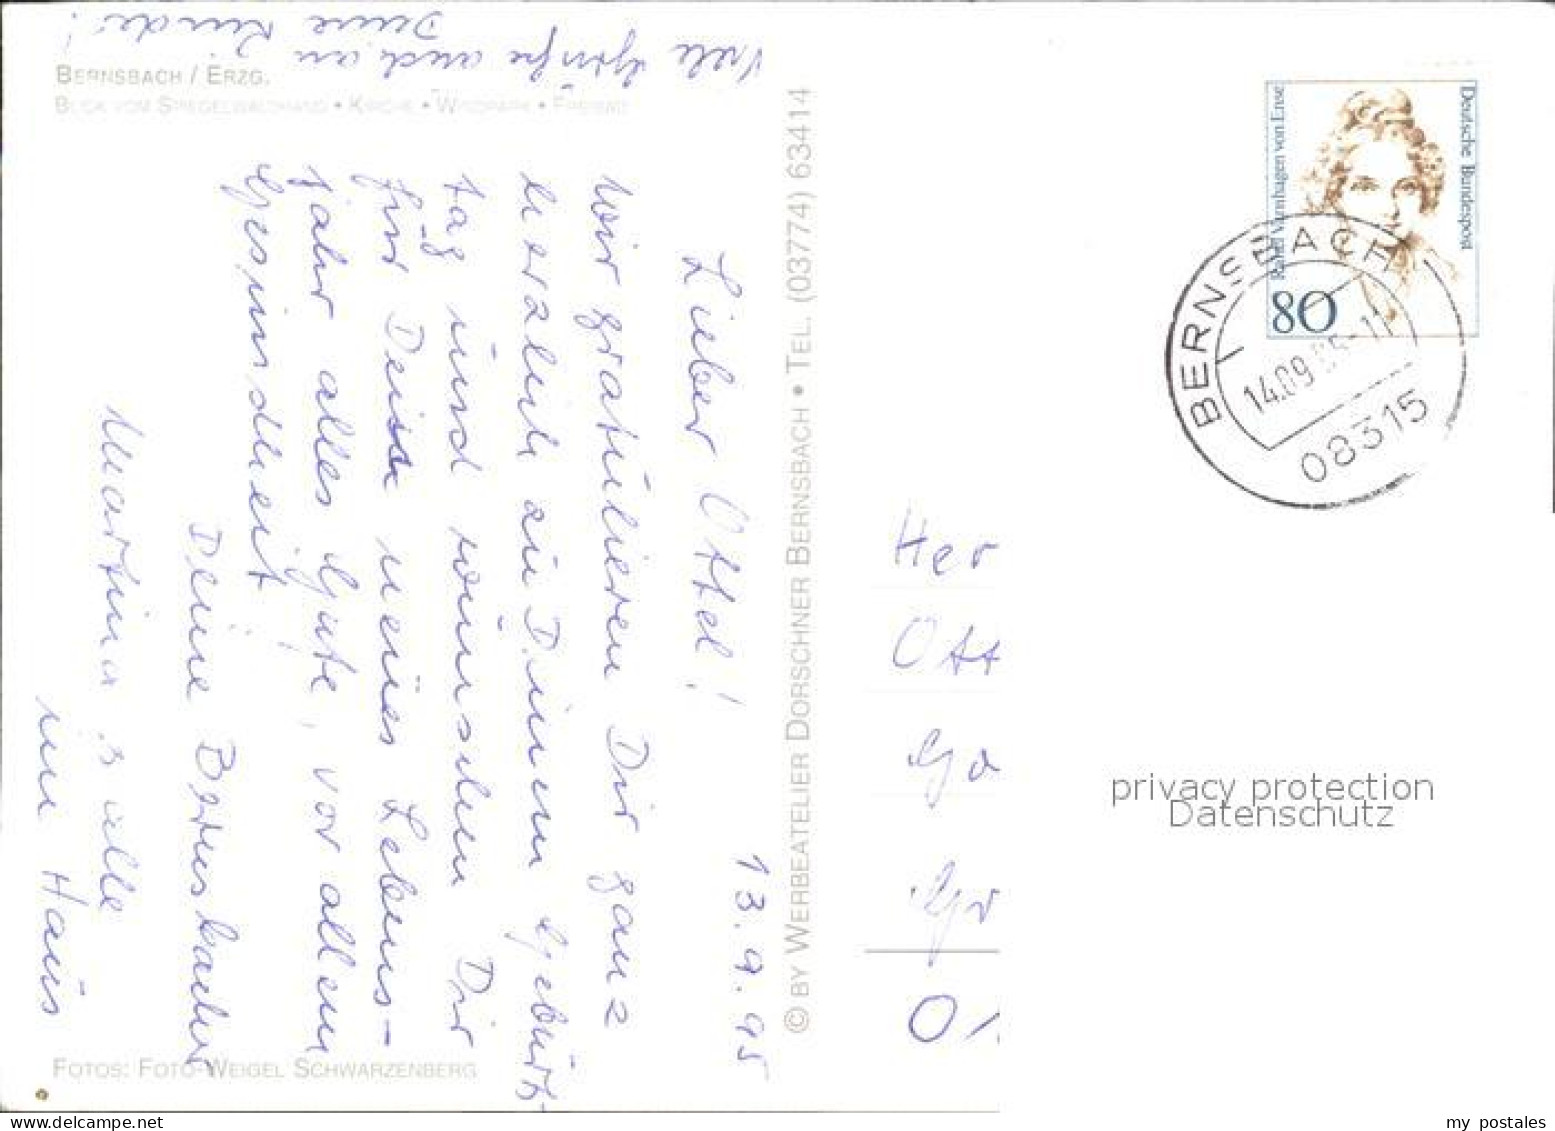 BERNSBACH / ERZG.
BLICK VOM SPIEGELWALDHANG • KIRCHE • WINDPARK • FREIBAD
13.9.95
Lieber Ottel!
Wir gratulieren Dir ganz
herzlich zu Deinem Geburts-
tag und wünschen Dir
für Dein neues Lebens-
jahr alles Gute, vor allem
Gesundheit
Deine Bernsbacher
Martina & alle
im Haus
Viele Grüße auch an
Deine Kinder!
FOTOS: FOTO-WEIGEL SCHWARZENBERG
© BY WERBEATELIER DORSCHNER BERNSBACH • TEL. (03774) 63414
Deutsche Bundespost
Rahel Varnhagen von Ense
80
BERNSBACH
14.09.95-11
08315
Her
Ott
Ga
Gr
privacy protection
Datenschutz
my postales